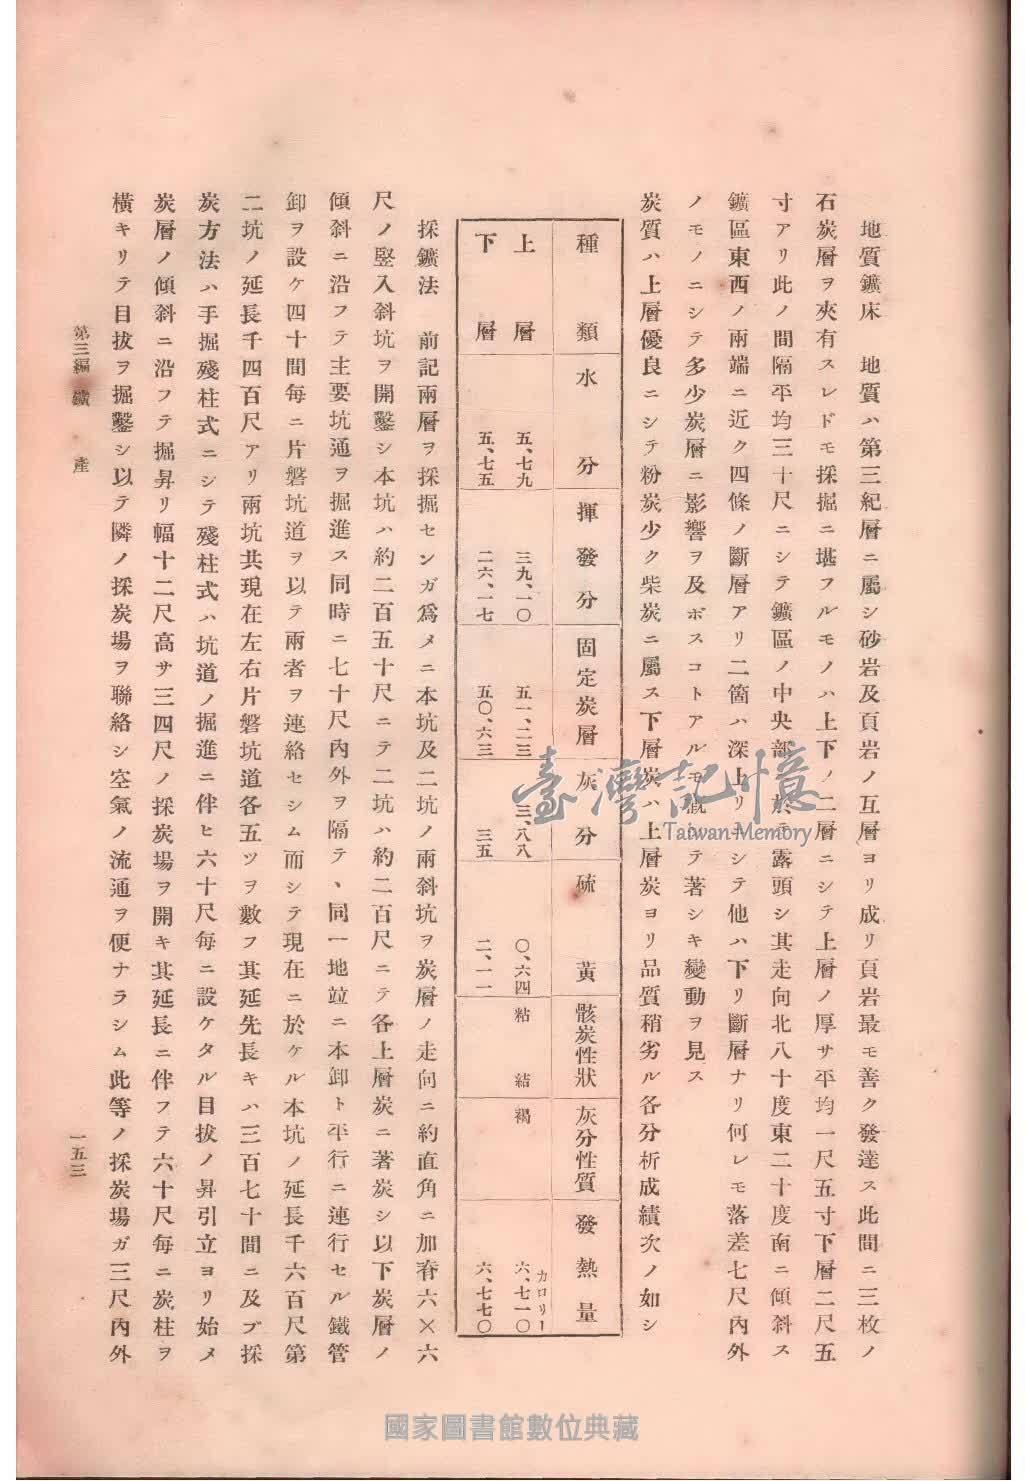 地質鑛床　地質ハ第三紀層ニ屬シ砂岩及頁岩ノ互層ヨリ成リ頁岩最モ善ク發達ス此間ニ三枚ノ
石炭層ヲ夾有スレドモ採掘ニ堪フルモノハ上下ノ二層ニシテ上層ノ厚サ平均一尺五寸下層二尺五
寸アリ此ノ間隔平均三十尺ニシテ鑛區ノ中央部ニ於テ露頭シ其走向北八十度東二十度南ニ傾斜ス
鑛區東西ノ兩端ニ近ク四條ノ斷層アリ二箇ハ深上リニシテ他ハ下リ斷層ナリ何レモ落差七尺內外
ノモノニシテ多少炭層ニ影響ヲ及ボスコトアルモ シテ著シキ變動ヲ見ス
炭質ハ上層優良ニシテ粉炭少ク柴炭ニ屬ス下層炭ハ上層炭ヨリ品質稍劣ル各分析成績次ノ如シ
種類　水分　揮發分　固定炭層　灰分　硫黃　骸炭性狀　灰分性質　發熱量
上層　五、七九　三九、一〇　五一、二三　三、八八　〇、六四　粘結　褐　カロリー六、七一〇
下層　五、七五　二六、一七　五〇、六三　三五　二、一一　六、七七〇
採鑛法　前記兩層ヲ採掘センガ爲メニ本坑及二坑ノ兩斜坑ヲ炭層ノ走向ニ約直角ニ加脊六×六
尺ノ竪入斜坑ヲ開鑿シ本坑ハ約二百五十尺ニテ二坑ハ約二百尺ニテ各上層炭ニ著炭シ以下炭層ノ
傾斜ニ沿フテ主要坑通ヲ掘進ス同時ニ七十尺內外ヲ隔テ、同一地竝ニ本卸ト平行ニ連行セル鐵管
卸ヲ設ケ四十間每ニ片磐坑道ヲ以テ兩者ヲ連絡セシム而シテ現在ニ於ケル本坑ノ延長千六百尺第
二坑ノ延長千四百尺アリ兩坑共現在左右片磐坑道各五ツヲ數フ其延先長キハ三百七十間ニ及ブ採
炭方法ハ手掘殘柱式ニシテ殘柱式ハ坑道ノ掘進ニ伴ヒ六十尺每ニ設ケタル目拔ノ昇引立ヨリ始メ
炭層ノ傾斜ニ沿フテ掘昇リ幅十二尺高サ三四尺ノ採炭場ヲ開キ其延長ニ伴フテ六十尺每ニ炭柱ヲ
橫キリテ目拔ヲ掘鑿シ以テ隣ノ採炭場ヲ聯絡シ空氣ノ流通ヲ便ナラシム此等ノ採炭場ガ三尺內外
第三編　鑛產
一五三
臺灣記憶
Taiwan Memory
國家圖書館數位典藏